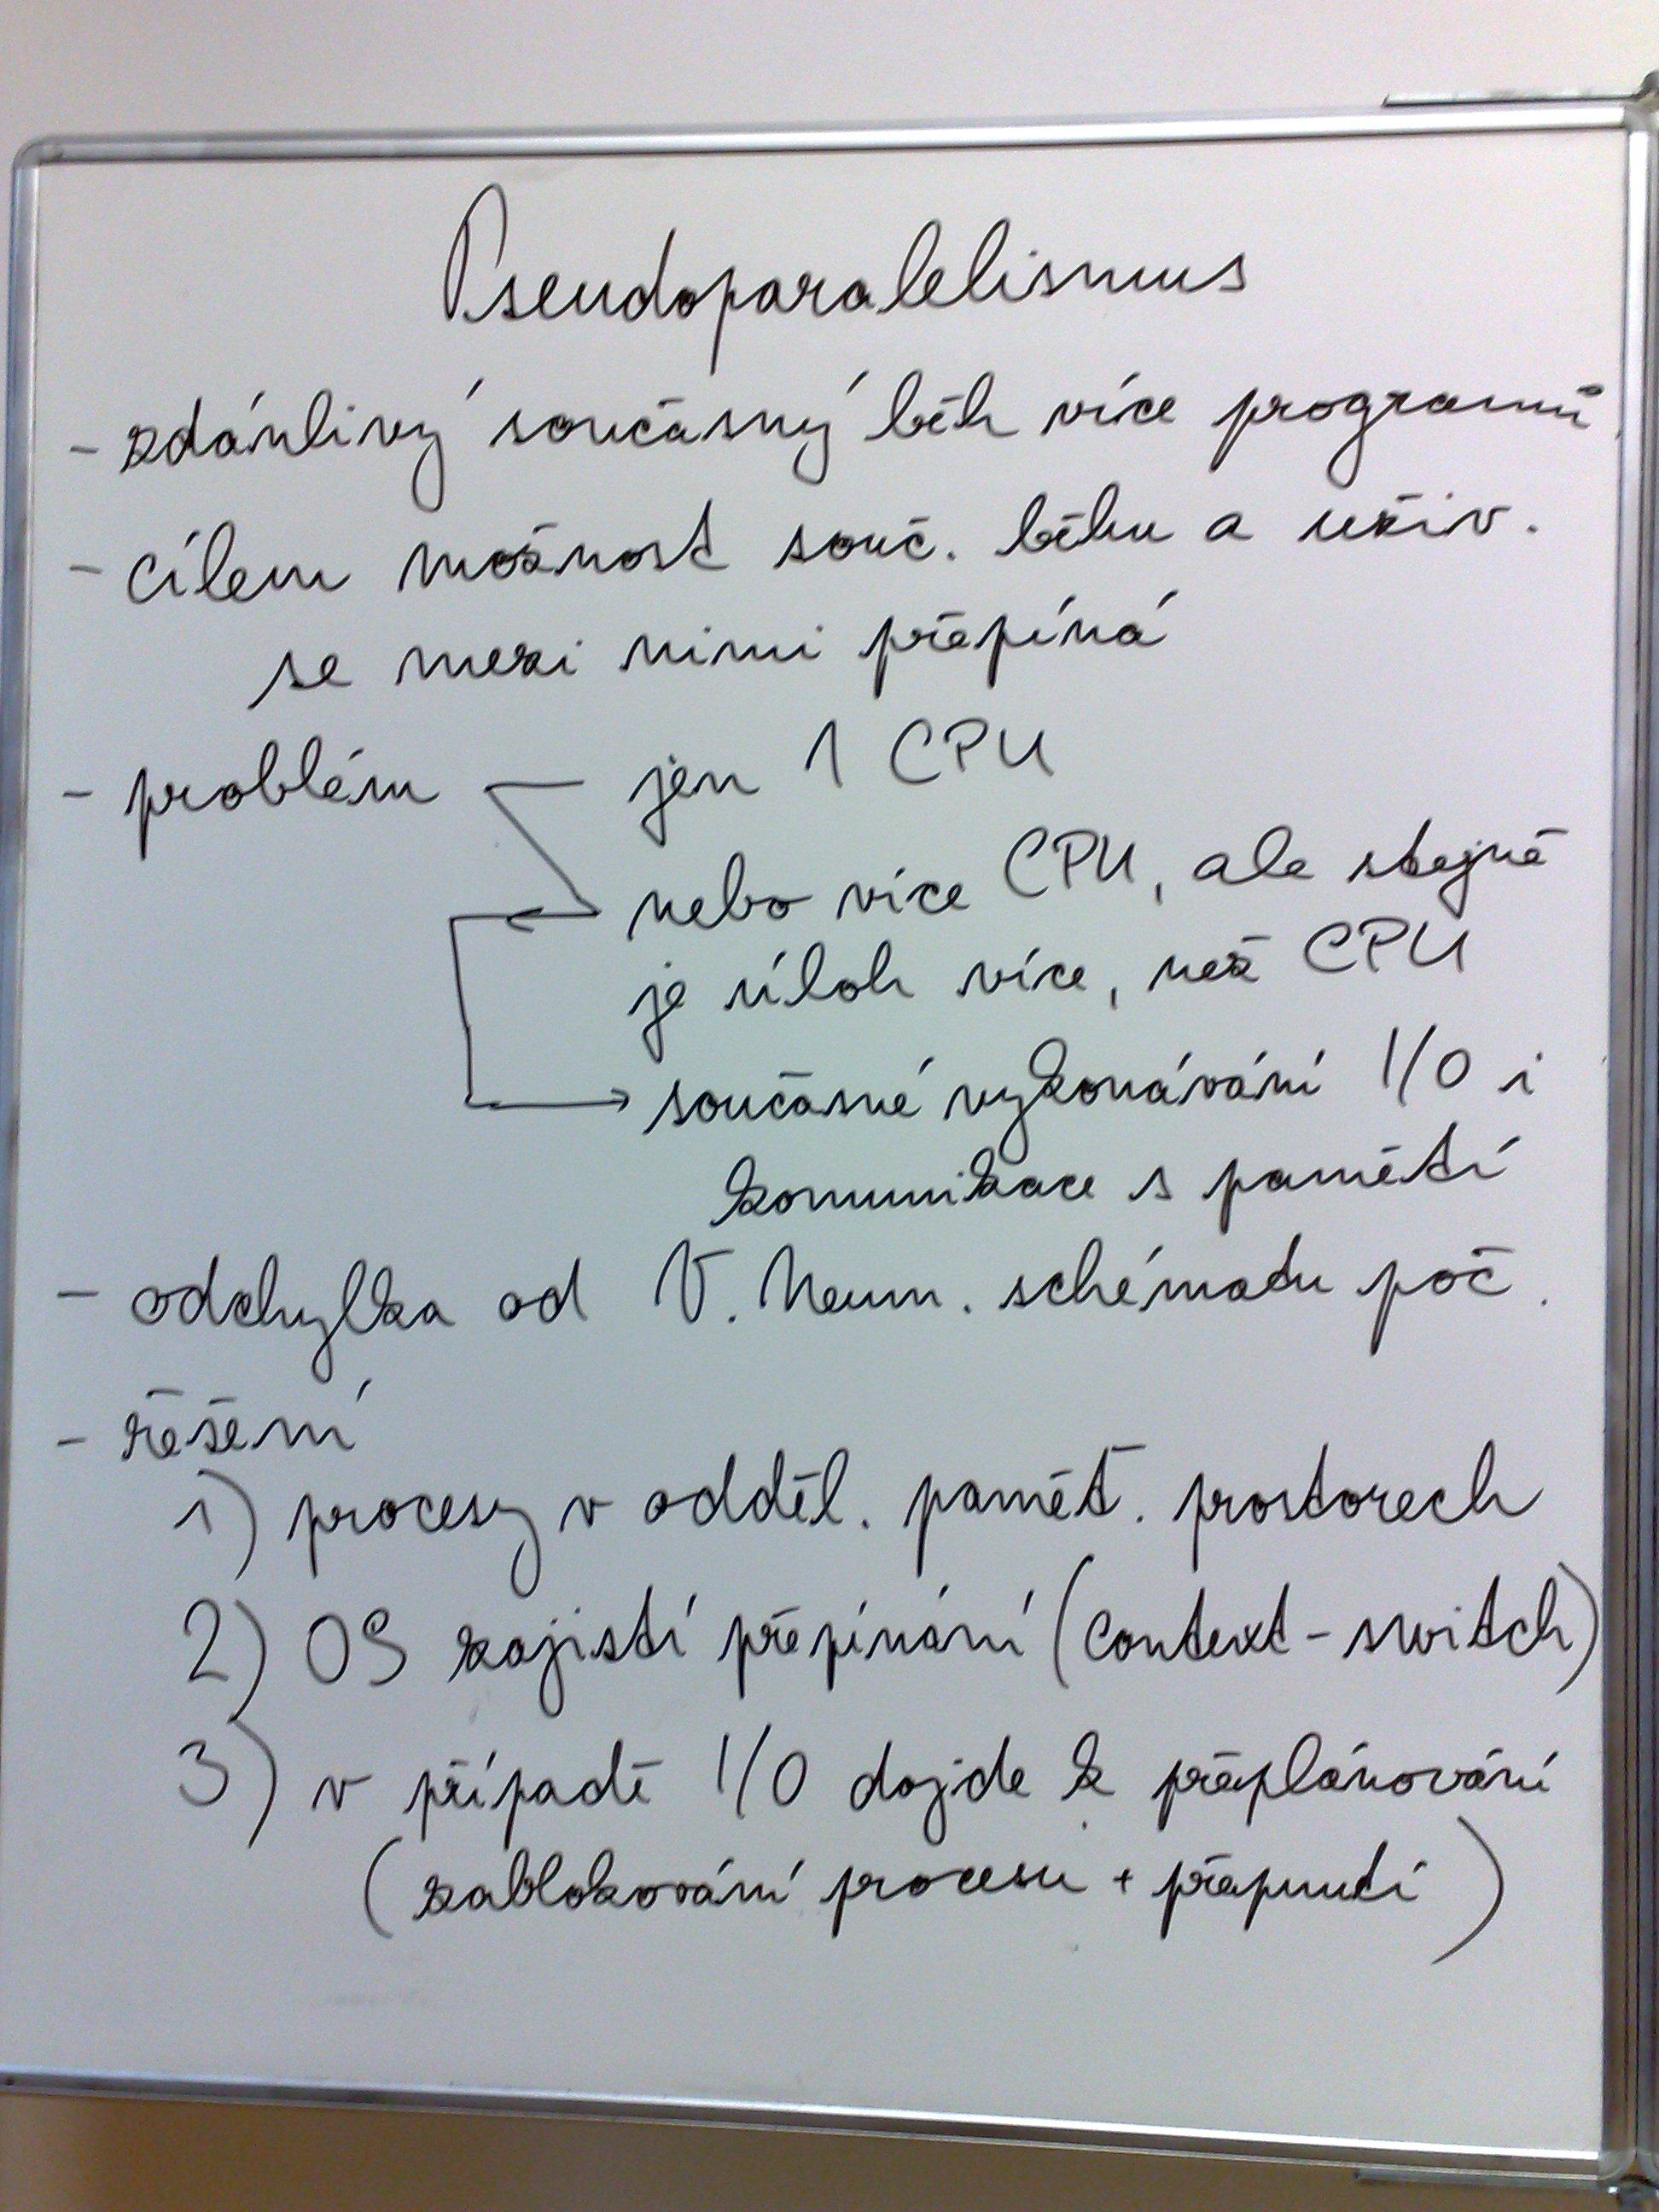 Pseudoparalelismus
- zdánlivý současný běh více programů
- cílem možnost souč. běhu a uživ.
se mezi nimi přepíná
- problém jen 1 CPU
nebo více CPU, ale stejně
je úloh více, než CPU
současné vykonávání I/O i
komunikace s pamětí
- odchylka od V. Neum. schématu poč.
- řešení
1) procesy v odděl. paměť. prostorech
2) OS zajistí přepínání (context-switch)
3) v případě I/O dojde k přeplánování
(zablokování procesu + přepnutí)